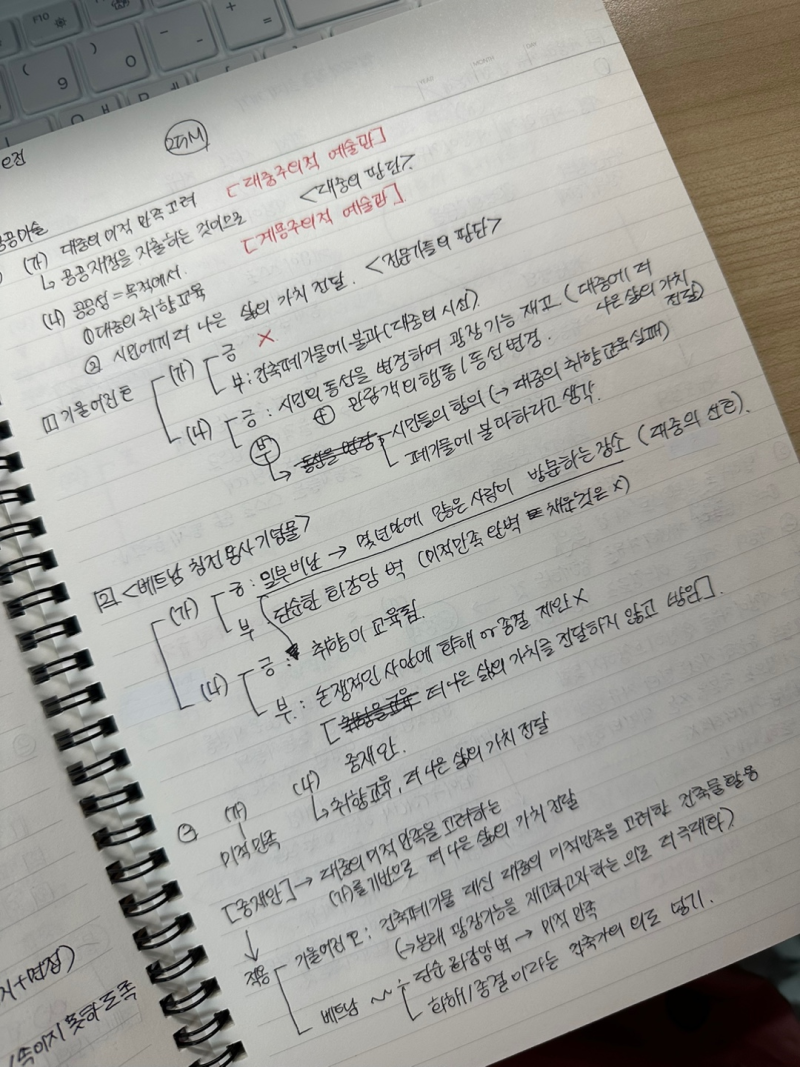 F10
( 9
) 0
- -
+ =
e점
공공미술
(가) 대중의 미적 만족 고려 [대중주의적 예술관]
↳ 공공재정을 지출하는 것이므로 <대중의 판단>.
(나) 공공성 = 목적에서. [계몽주의적 예술관].
① 대중의 취향 교육
② 시민에게 더 나은 삶의 가치 전달. <전문가들의 판단>
① 기울어진 호
(가) 긍 X
부: 건축폐기물에 불과 (대중의 시선).
(나) 긍: 시민의 동선을 변경하여 광장 기능 재고 (대중에 더 나은 삶의 가치 전달)
⊕ 관람객의 행동/동선 변경.
부 ↳ 시민들의 항의 (→ 대중의 취향 교육 실패)
폐기물에 불과하다고 생각.
② <베트남 참전 용사 기념물>
(가) 긍: 일부 비난 → 몇년만에 많은 사람이 방문하는 장소 (대중의 선호).
부 단순한 화강암 벽 (미적만족 완벽 채운것은 X)
(나) 긍: 취향이 교육됨.
부: 논쟁적인 사안에 화해 or 종결 제안 X
[더 나은 삶의 가치를 전달하지 않고 방임].
중재안.
(가) (나)
미적 만족 ↳ 취향교육, 더 나은 삶의 가치 전달
[중재안] → 대중의 미적 만족을 고려하는
(가)를 기반으로 더 나은 삶의 가치 전달
↓
적용 기울어진 호: 건축폐기물 대신 대중의 미적만족을 고려한 건축물 활용
(→ 본래 광장기능을 재고하고자 하는 의도 더 극대화)
베트남 ~ : 단순 화강암 벽 → 미적 만족
화해/종결이라는 건축가의 의도 담기.
지+면접)
속이지 못하도록